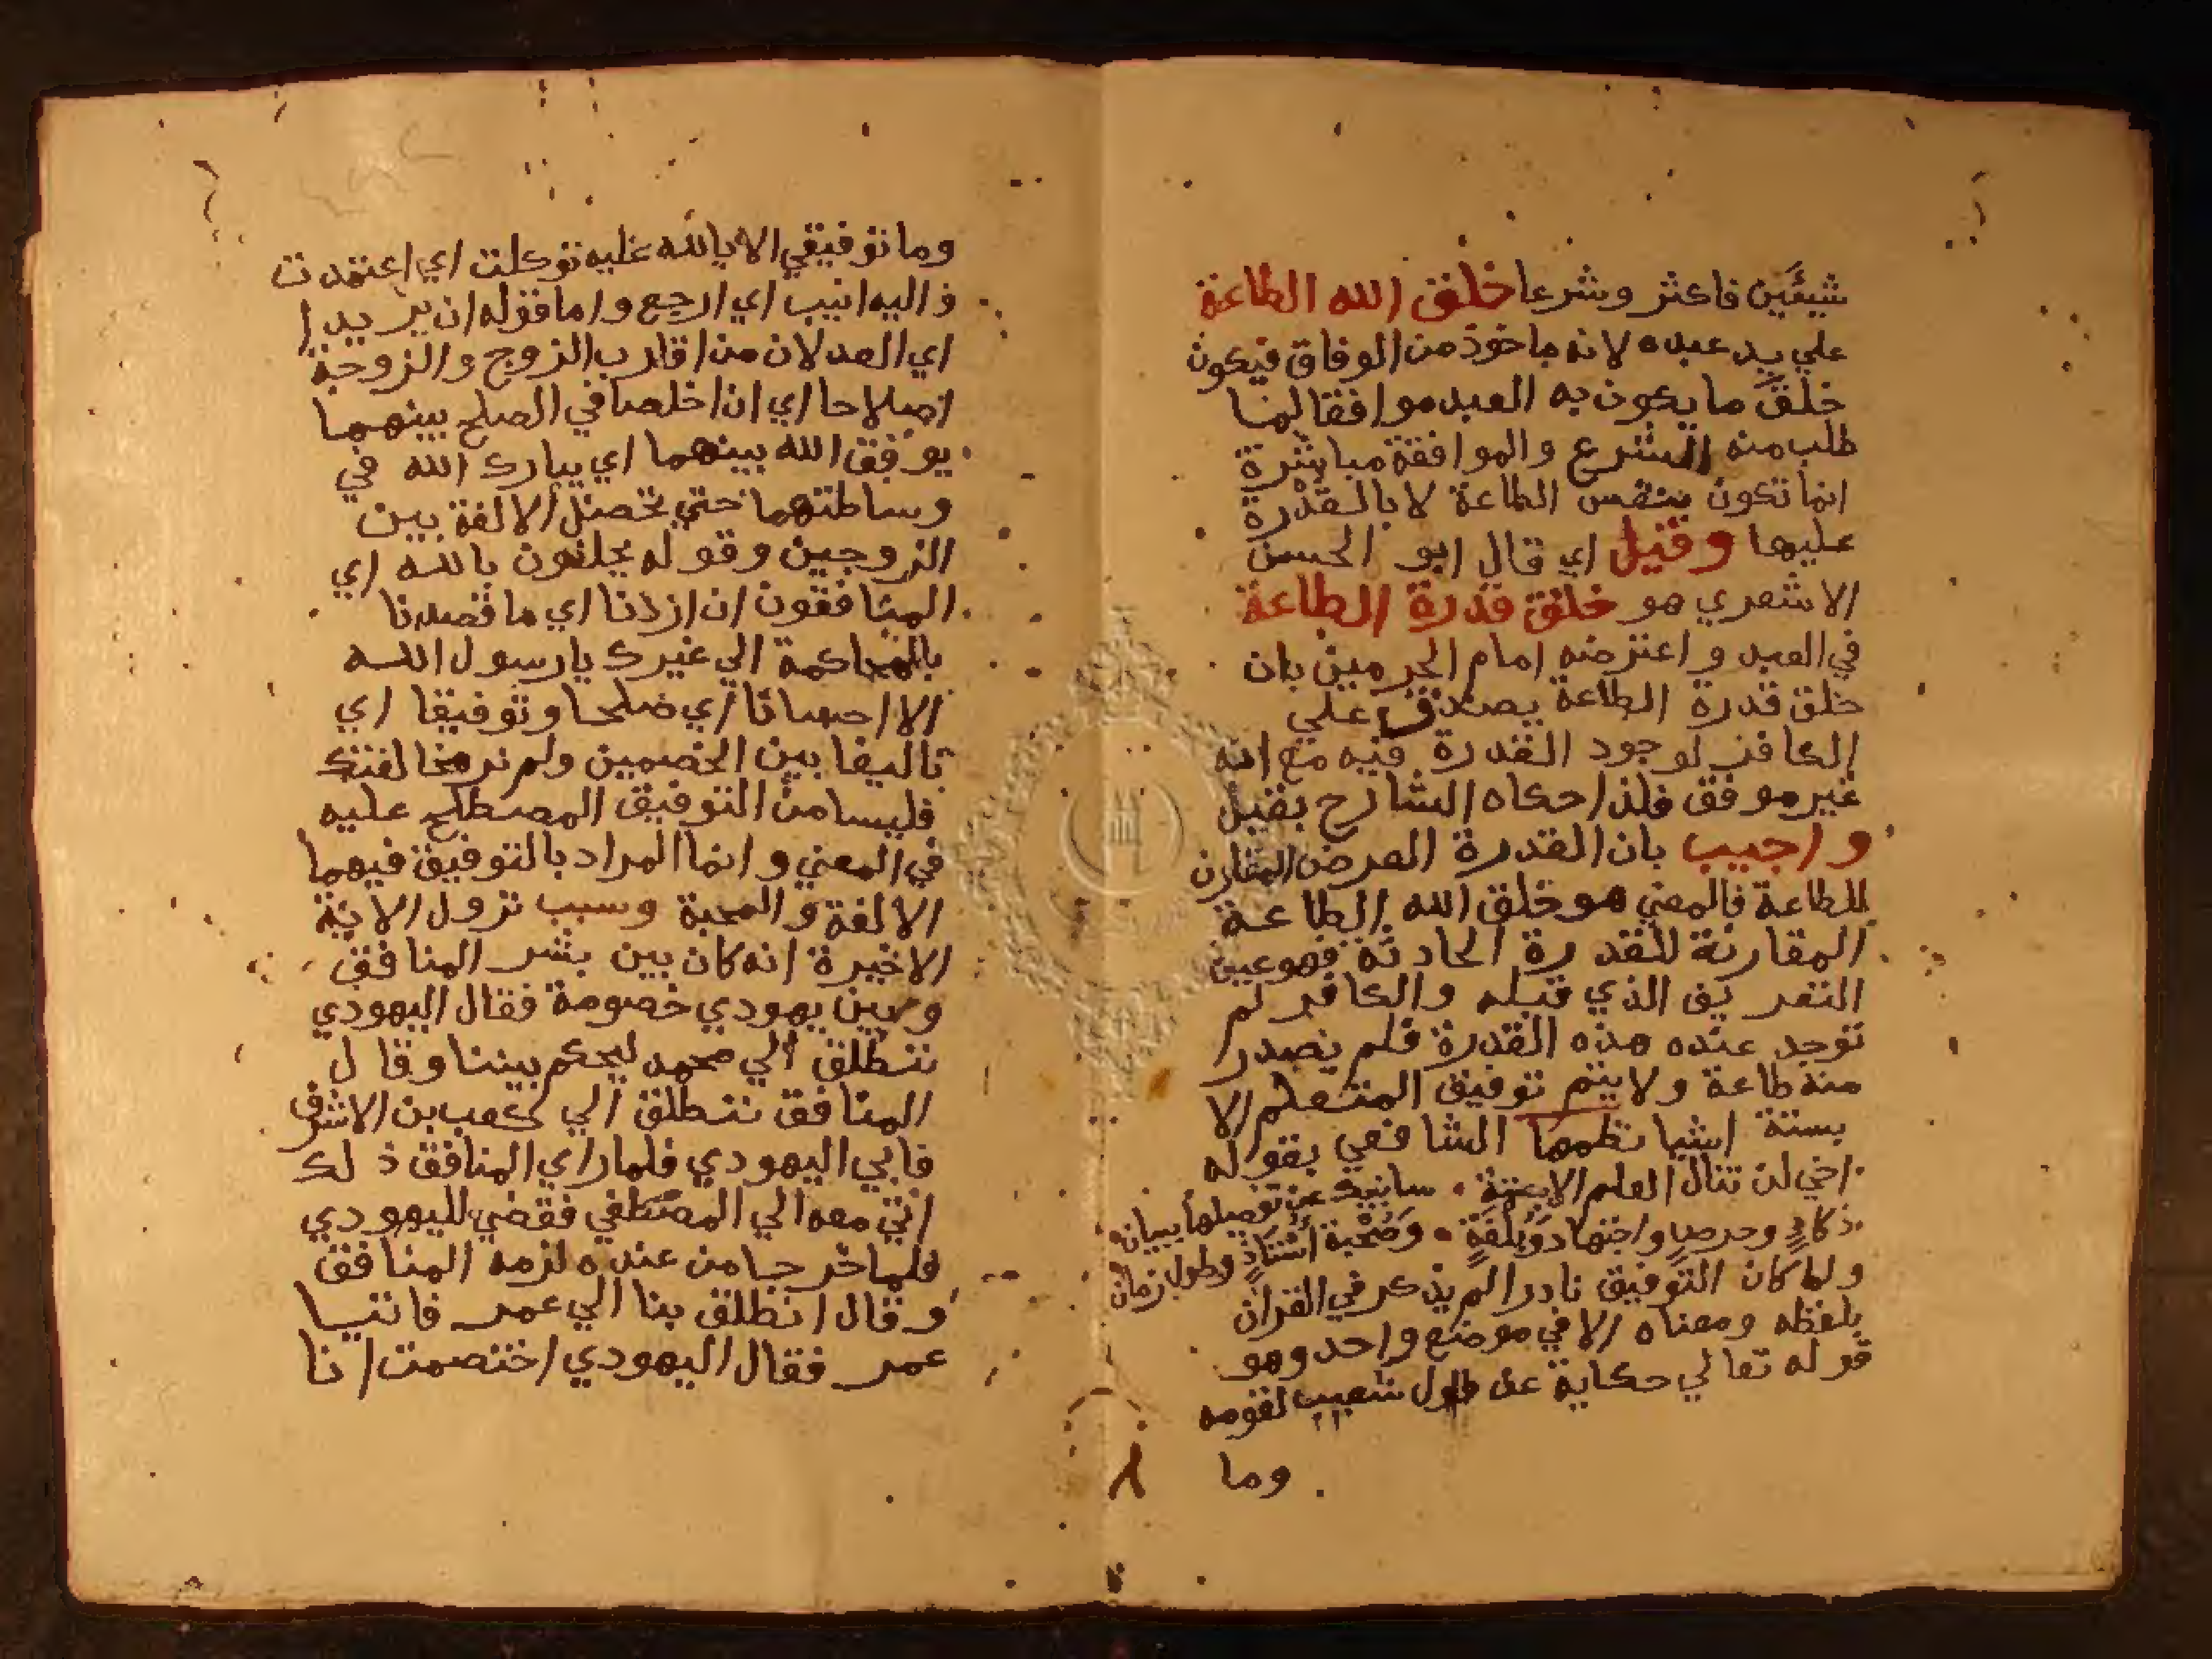 شيئين فاكثر وشرعا خلق الله الطاعة
علي يد عبده لانه ماخوذ من الوفاق فيكون
خلق ما يكون به العبد موافقا لما
طلب منه الشرع والموافقة مباشرة
انما تكون بنفس الطاعة لا بالقدرة
عليها وقيل اي قال ابو الحسن
الاشعري هو خلق قدرة الطاعة
في العبد واعترضه امام الحرمين بان
خلق قدرة الطاعة يصدق علي
الكافر لوجود القدرة فيه مع انه
غير موفق فلذا حكاه الشارح بقيل
واجيب بان القدرة العرض المقارن
للطاعة فالمعني هو خلق الله الطاعة
المقارنة للقدرة الحادثة فهو عين
التعريف الذي قبله والكافر لم
توجد عنده هذه القدرة فلم يصدر
منه طاعة ولا يتم توفيق المتعلم الا
بستة اشيا نظمها الشافعي بقوله
اخي لن تنال العلم الا بستة سانبيك عن تفصيلها ببيان
ذكاء وحرص واجتهاد وبلغة وصحبة استاذ وطول زمان
ولما كان التوفيق نادرا لم يذكر في القران
بلفظه ومعناه الا في موضع واحد وهو
قوله تعالي حكاية عن شعيب لقومه
وما
٨
وما توفيقي الا بالله عليه توكلت اي اعتمدت
واليه انيب اي ارجع واما قوله ان يريدا
اي العدلان من اقارب الزوج والزوجة
اصلاحا اي ان اخلصا في الصلح بينهما
يوفق الله بينهما اي يبارك الله في
وساطتهما حتي تحصل الالفة بين
الزوجين وقوله يحلفون بالله اي
المنافقون ان اردنا اي ما قصدنا
بالمحاكمة الي غيرك يا رسول الله
الا احسانا اي صلحا وتوفيقا اي
تاليفا بين الخصمين ولم نرد مخالفتك
فليسا من التوفيق المصطلح عليه
في المعني وانما المراد بالتوفيق فيهما
الالفة والمحبة وسبب نزول الاية
الاخيرة انه كان بين بشر المنافق
وبين يهودي خصومة فقال اليهودي
ننطلق الي محمد ليحكم بيننا وقال
المنافق ننطلق الي كعب بن الاشرف
فابي اليهودي فلما راي المنافق ذلك
اتي معه الي المصطفي فقضي لليهودي
فلما خرجا من عنده لزمه المنافق
وقال انطلق بنا الي عمر فاتيا
عمر فقال اليهودي اختصمت انا